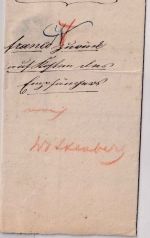 franco zurück
auf Kosten des
Empfängers
Wittenberg